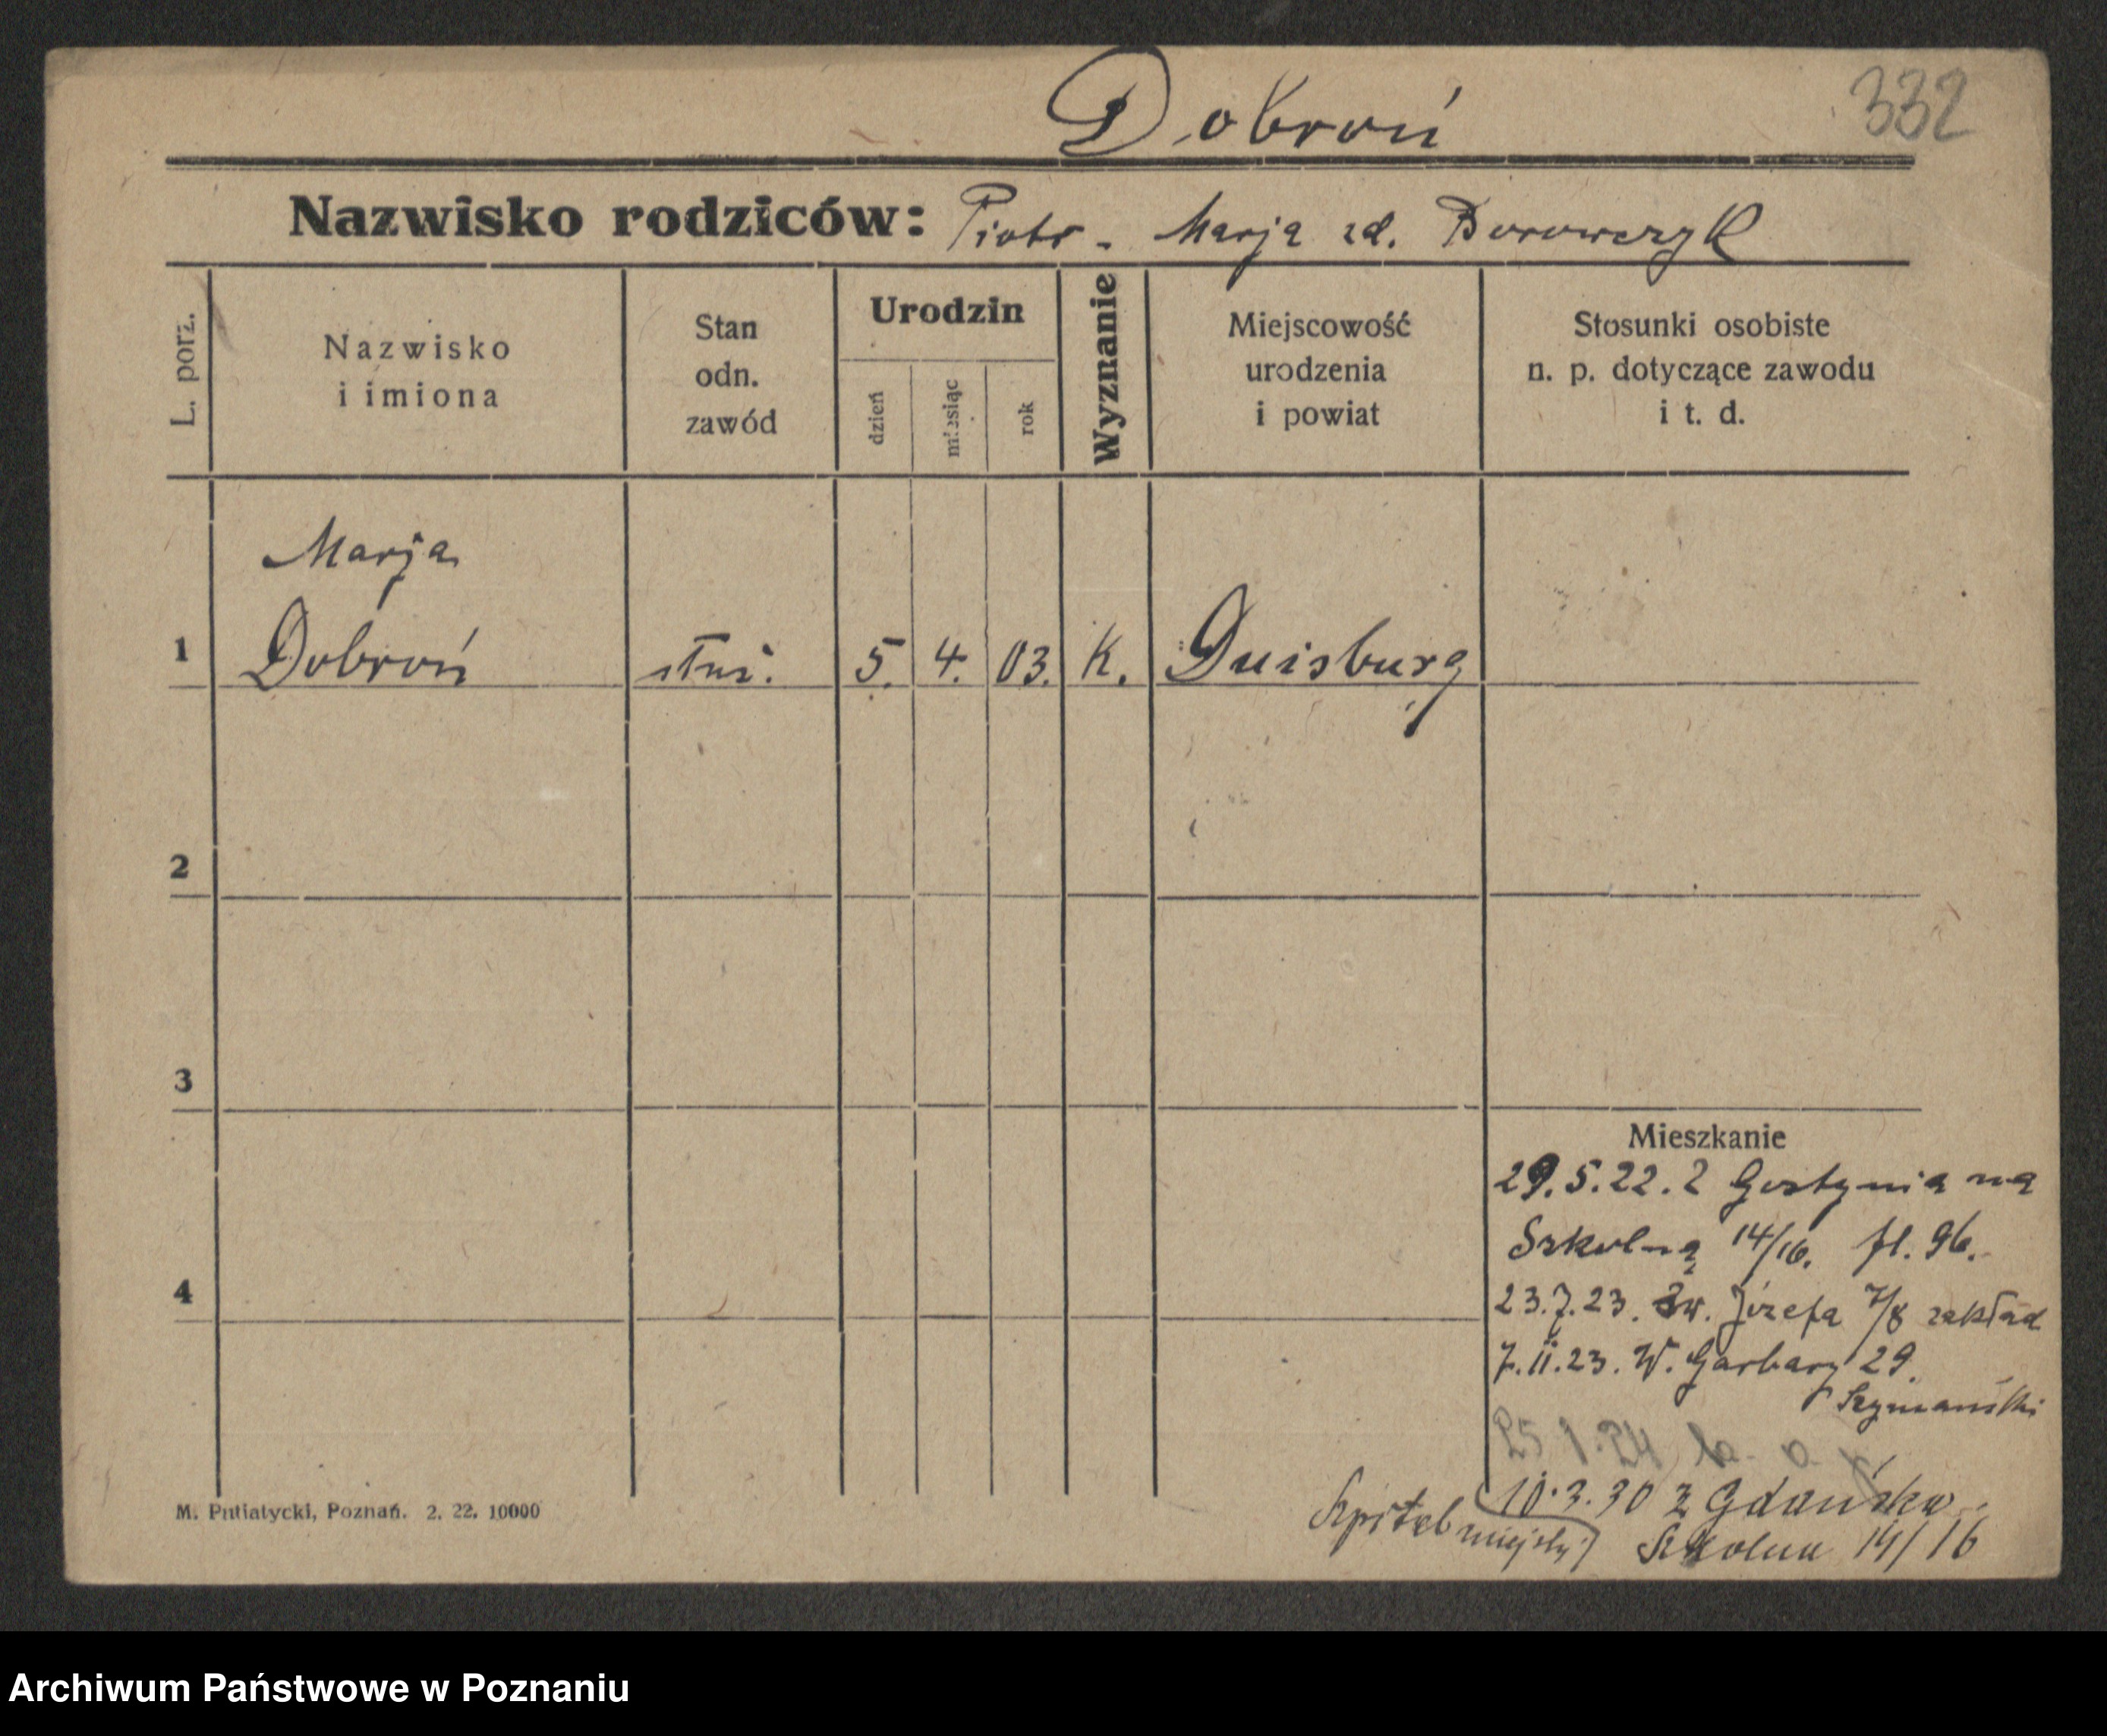 Dobroń
332
Nazwisko rodziców: Piotr - Marja zd. Borowczyk
L. porz.
Nazwisko
i imiona
Stan
odn.
zawód
Urodzin
dzień
miesiąc
rok
Wyznanie
Miejscowość
urodzenia
i powiat
Stosunki osobiste
n. p. dotyczące zawodu
i t. d.
Marja
1 Dobroń służ. 5. 4. 03. K. Duisburg
2
3
4
Mieszkanie
29.5.22. z Gostynia na
Szkolną 14/16. fl. 96.
23.7.23. Św. Józefa 7/8 zakład
7.11.23. W. Garbary 29.
Szymański
25 1.24
10.3.30 z Gdańska
Szpital miejski Szkolna 14/16
M. Putiatycki, Poznań. 2. 22. 10000
Archiwum Państwowe w Poznaniu